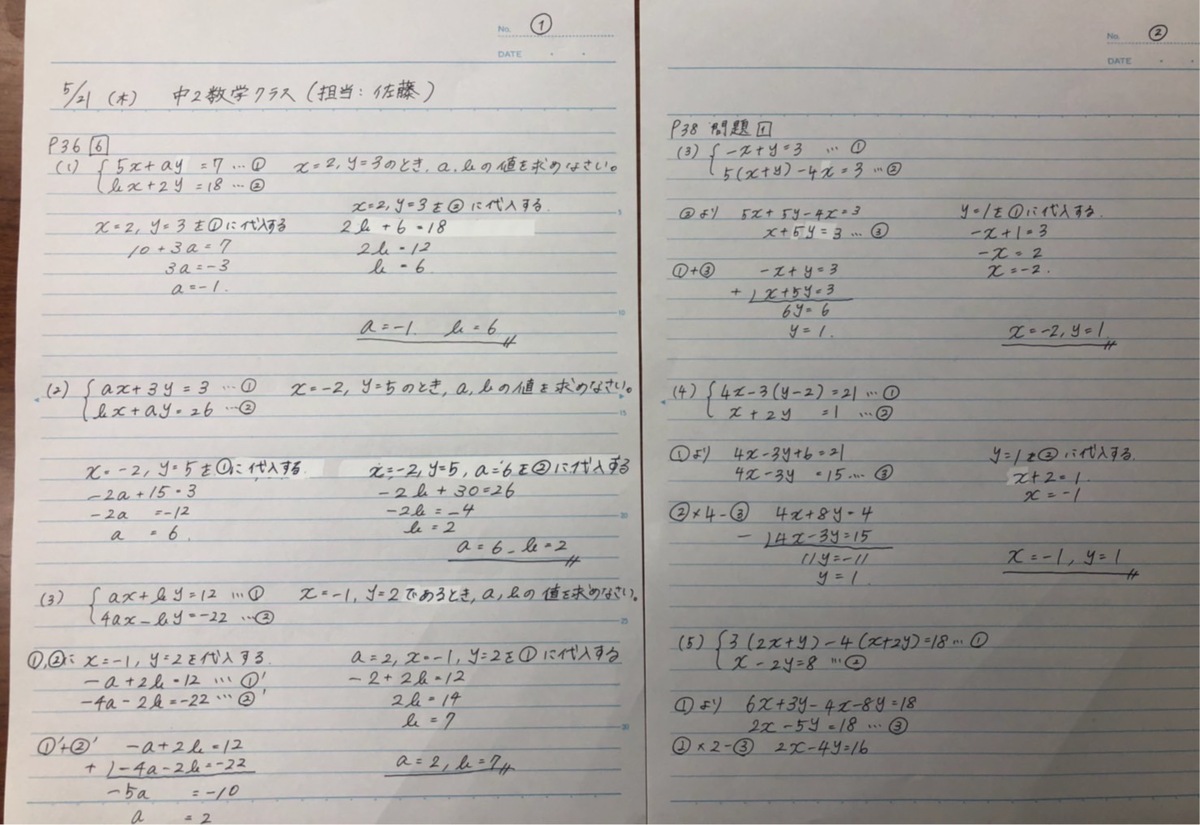 No. ①
DATE ・ ・
5/21 (木) 中2数学クラス (担当:佐藤)
P36 6
(1) { 5x+ay=7 … ① x=2, y=3のとき, a, bの値を求めなさい。
bx+2y=18 … ②
x=2, y=3を①に代入する
10+3a=7
3a=-3
a=-1.
x=2, y=3を②に代入する.
2b+6=18
2b=12
b=6.
a=-1 b=6
(2) { ax+3y=3 … ① x=-2, y=5のとき, a, bの値を求めなさい。
bx+ay=26 … ②
x=-2, y=5を①に代入する.
-2a+15=3
-2a =-12
a = 6.
x=-2, y=5, a=6を②に代入する
-2b+30=26
-2b=-4
b=2
a=6 b=2
(3) { ax+by=12 … ① x=-1, y=2であるとき, a, bの値を求めなさい。
4ax-by=-22 … ②
①,②に x=-1, y=2を代入する.
-a+2b=12 … ①'
-4a-2b=-22 … ②'
①'+②' -a+2b=12
+) -4a-2b=-22
-5a =-10
a =2
a=2, x=-1, y=2を①に代入する
-2+2b=12
2b=14
b=7
a=2, b=7
No. ②
DATE ・ ・
P38 問題 1
(3) { -x+y=3 … ①
5(x+y)-4x=3 … ②
②より 5x+5y-4x=3
x+5y=3 … ③
①+③ -x+y=3
+) x+5y=3
6y=6
y=1.
y=1を①に代入する.
-x+1=3
-x=2
x=-2.
x=-2, y=1
(4) { 4x-3(y-2)=21 … ①
x+2y =1 … ②
①より 4x-3y+6=21
4x-3y =15 … ③
②×4-③ 4x+8y=4
-) 4x-3y=15
11y=-11
y=1.
y=1を②に代入する.
x+2=1.
x=-1
x=-1, y=1
(5) { 3(2x+y)-4(x+2y)=18 … ①
x-2y=8 … ②
①より 6x+3y-4x-8y=18
2x-5y=18 … ③
①×2-③ 2x-4y=16